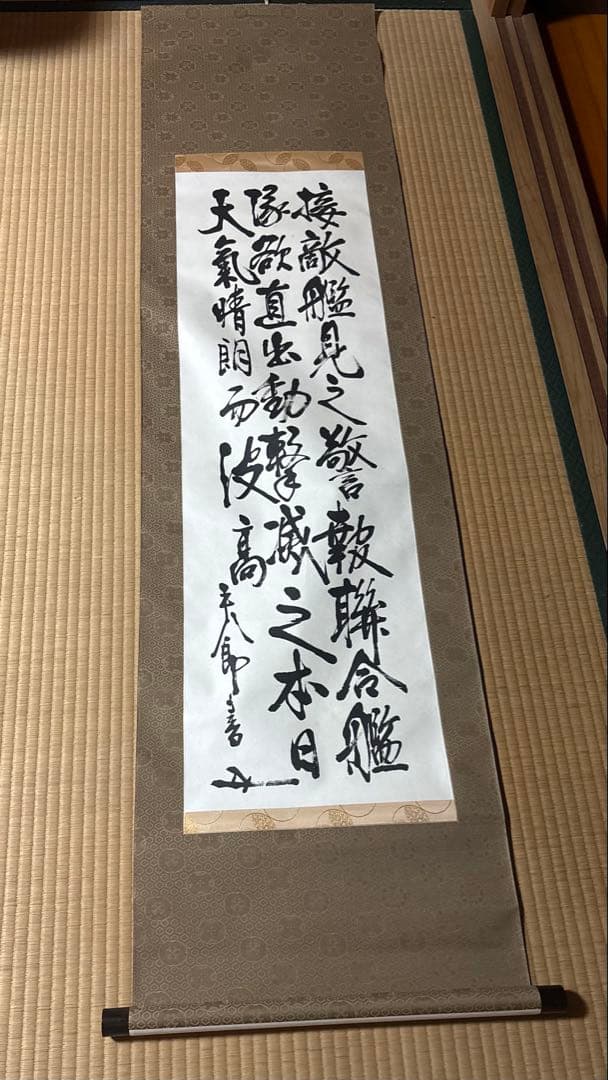 接敵艦見之警報聯合艦
隊欲直出動撃滅之本日
天氣晴朗而波高
平八郎書